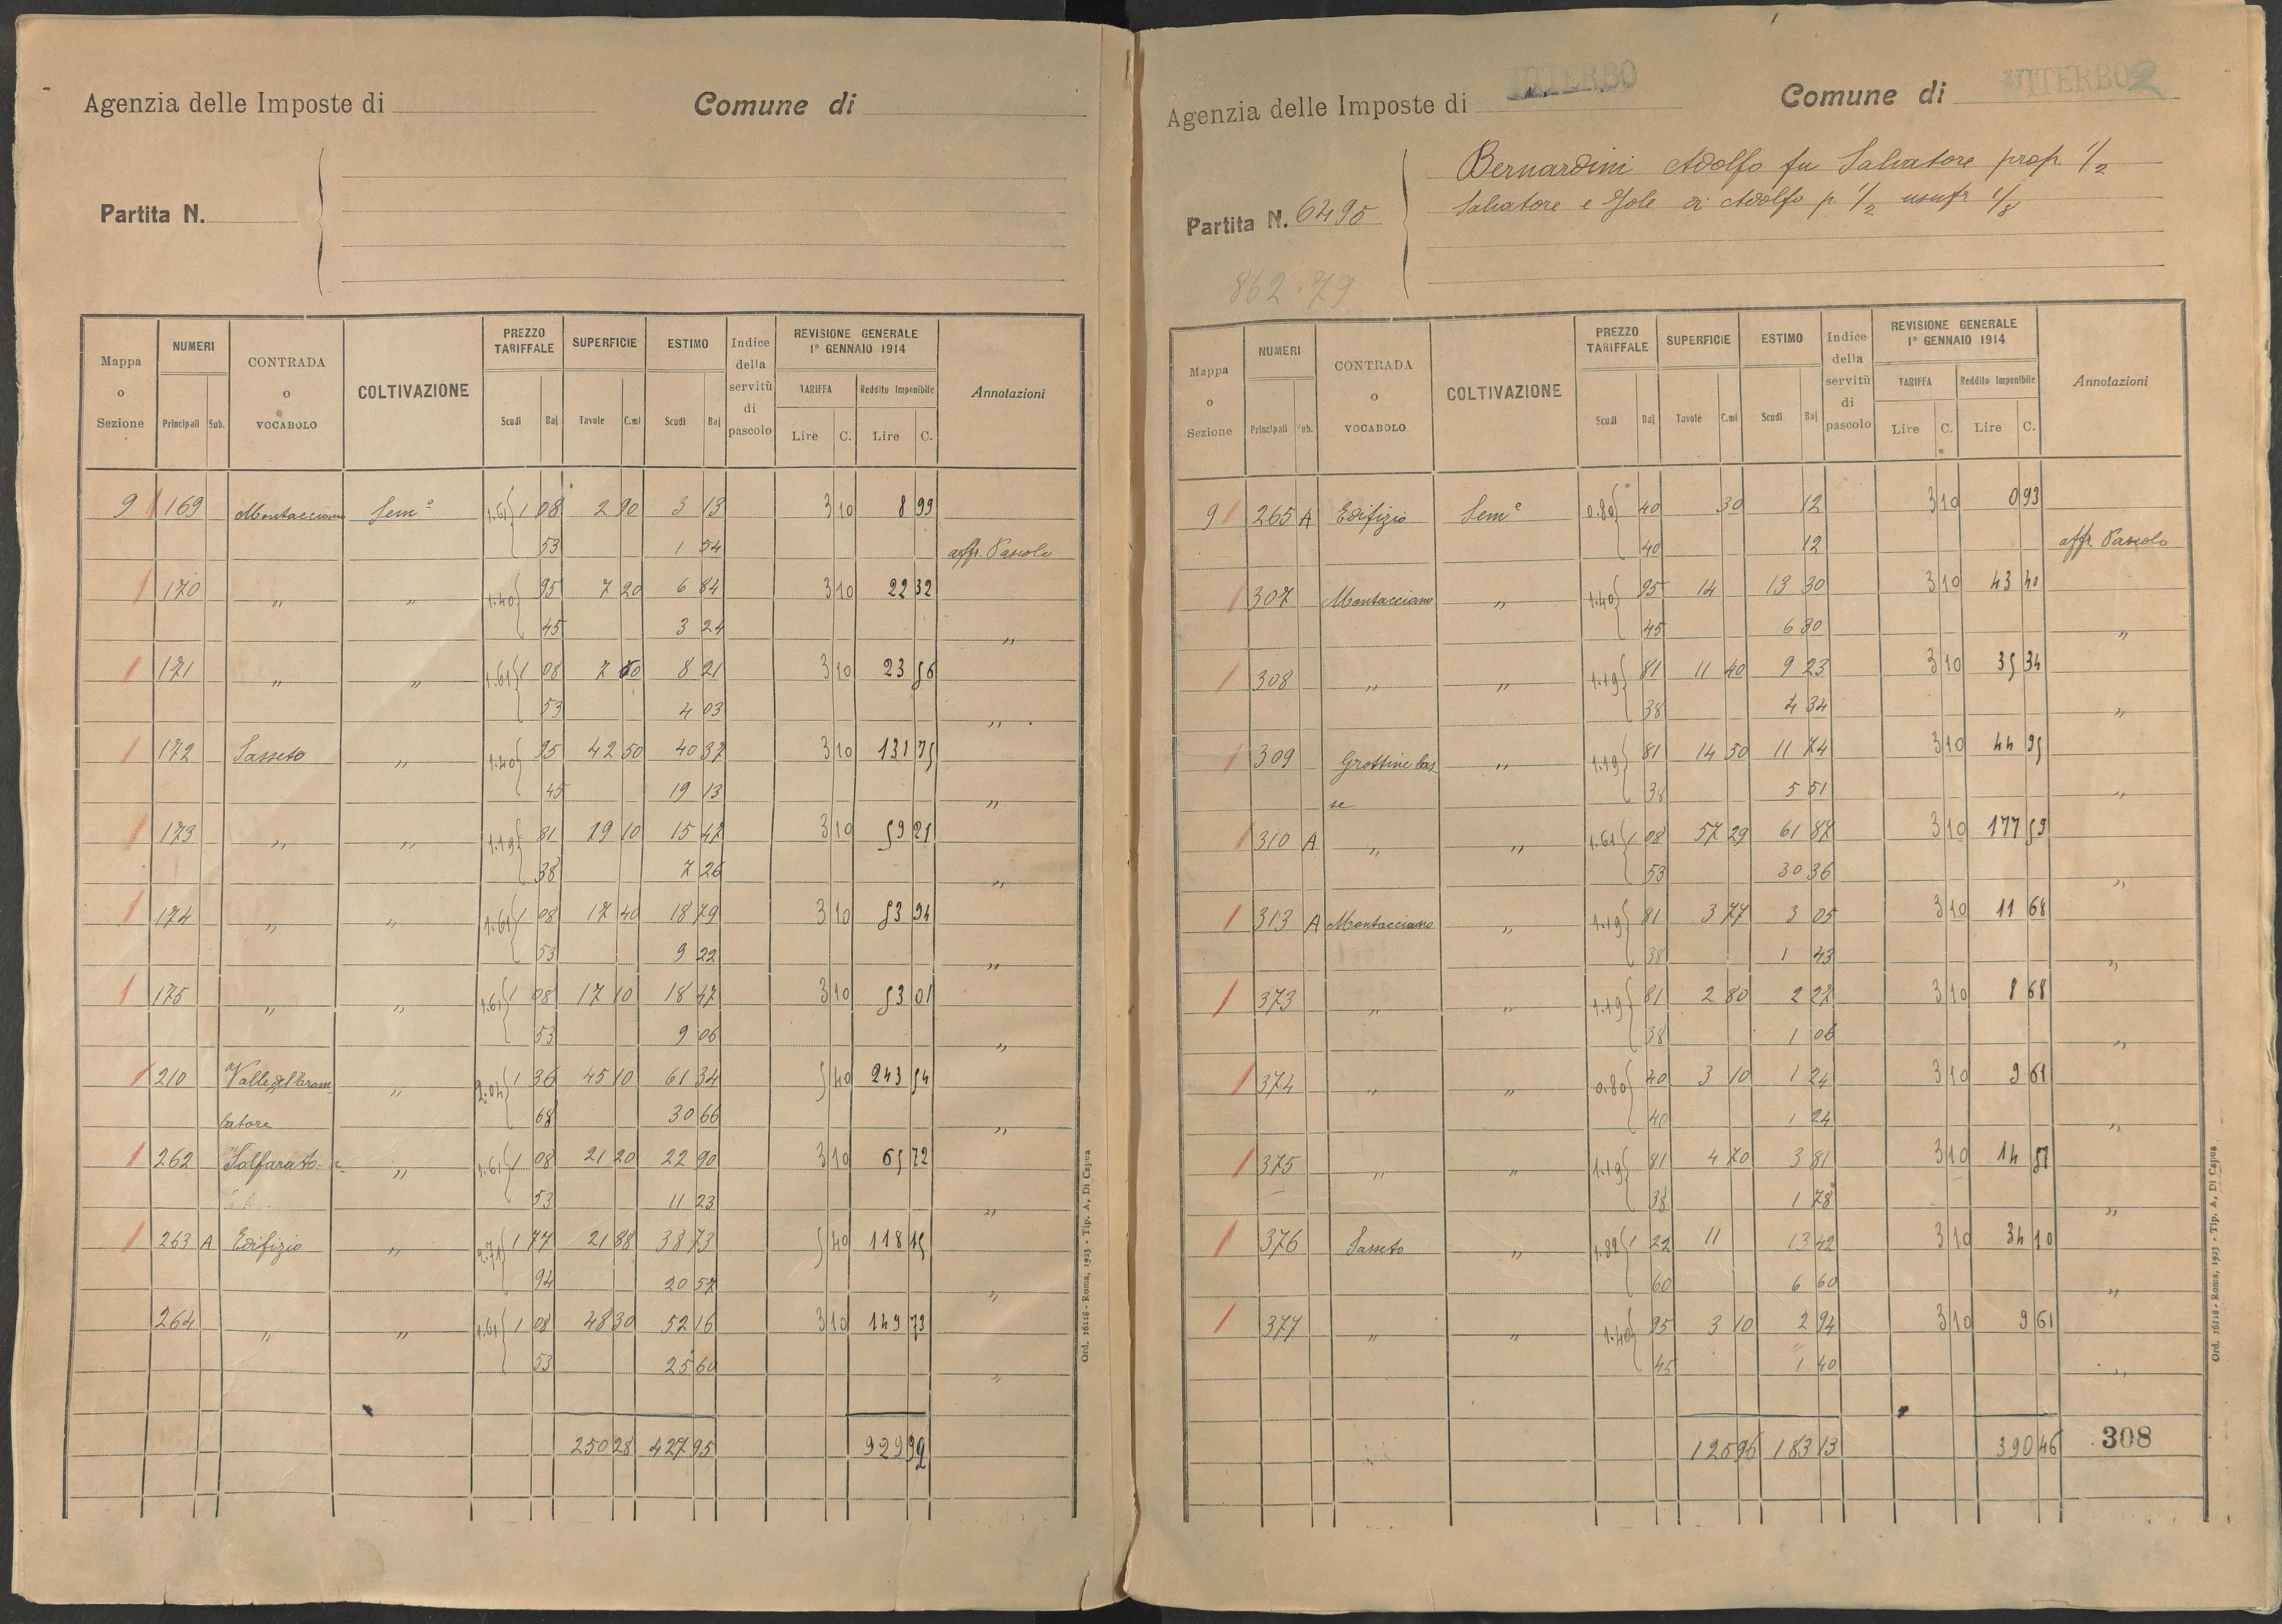 Agenzia delle Imposte di
Comune di
Partita N.
Mappa o Sezione
NUMERI
Principali Sub.
CONTRADA o VOCABOLO
COLTIVAZIONE
PREZZO TARIFFALE
Scudi Baj
SUPERFICIE
Tavole C.mi
ESTIMO
Scudi Baj
Indice della servitù di pascolo
REVISIONE GENERALE 1° GENNAIO 1914
TARIFFA
Lire C.
Reddito Imponibile
Lire C.
Annotazioni
9 169 Montacciano Sem° 1.61 1 08 2 90 3 13 3 10 8 99
53 1 54 affr. Pascolo
170 " " 1.40 95 7 20 6 84 3 10 22 32
45 3 24 "
171 " " 1.61 1 08 7 60 8 21 3 10 23 56
53 4 03 "
172 Sasseto " 1.40 95 42 50 40 37 3 10 131 75
45 19 13 "
173 " " 1.19 81 19 10 15 47 3 10 59 21
38 7 26 "
174 " " 1.61 1 08 17 40 18 79 3 10 53 94
53 9 22 "
175 " " 1.61 1 08 17 10 18 47 3 10 53 01
53 9 06 "
210 Valle del " 2.04 1 36 45 10 61 34 5 40 243 54
batore 68 30 66 "
262 Solfarato " 1.61 1 08 21 20 22 90 3 10 65 72
53 11 23 "
263 A Edifizio " 2.71 1 77 21 88 38 73 5 40 118 15
94 20 57 "
264 " " 1.61 1 08 48 30 52 16 3 10 149 73
53 25 60 "
250 28 427 95 929 92
Ord. 16118 - Roma, 1923 - Tip. A. Di Capua
Agenzia delle Imposte di VITERBO
Comune di VITERBO 2
Partita N. 6495
Bernardini Adolfo fu Salvatore prop. 1/2
Salvatore e Jole di Adolfo p. 1/2 usufr 1/8
862.79
Mappa o Sezione
NUMERI
Principali Sub.
CONTRADA o VOCABOLO
COLTIVAZIONE
PREZZO TARIFFALE
Scudi Baj
SUPERFICIE
Tavole C.mi
ESTIMO
Scudi Baj
Indice della servitù di pascolo
REVISIONE GENERALE 1° GENNAIO 1914
TARIFFA
Lire C.
Reddito Imponibile
Lire C.
Annotazioni
9 265 A Edifizio Sem° 0.80 40 30 12 3 10 0 93
40 12 affr. Pascolo
307 Montacciano " 1.40 95 14 13 30 3 10 43 40
45 6 30 "
308 " " 1.19 81 11 40 9 23 3 10 35 34
38 4 34 "
309 Grottine bas " 1.19 81 14 50 11 74 3 10 44 95
se 38 5 51 "
310 A " " 1.61 1 08 57 29 61 87 3 10 177 59
53 30 36 "
313 A Montacciano " 1.19 81 3 77 3 05 3 10 11 68
38 1 43 "
373 " " 1.19 81 2 80 2 27 3 10 8 68
38 1 06 "
374 " " 0.80 40 3 10 1 24 3 10 9 61
40 1 24 "
375 " " 1.19 81 4 70 3 81 3 10 14 57
38 1 78 "
376 Sasseto " 1.82 1 22 11 13 42 3 10 34 10
60 6 60 "
377 " " 1.40 95 3 10 2 94 3 10 9 61
45 1 40 "
125 96 183 13 390 46 308
Ord. 16118 - Roma, 1923 - Tip. A. Di Capua